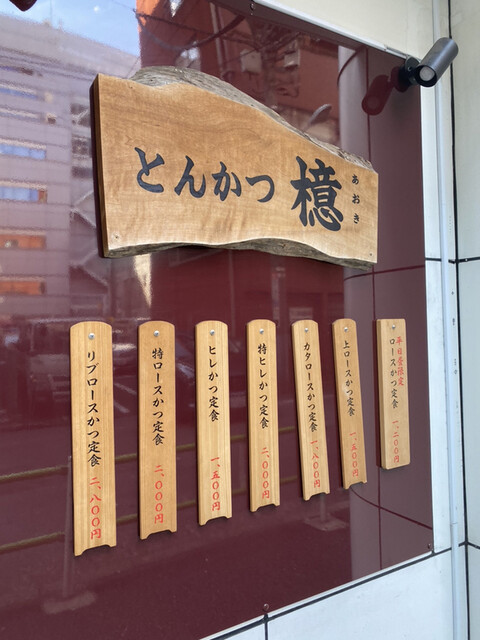 とんかつ 檍
あおき
平日昼限定
ロースかつ定食 一、二〇〇円
上ロースかつ定食 一、五〇〇円
カタロースかつ定食 一、八〇〇円
特ヒレかつ定食 二、〇〇〇円
ヒレかつ定食 一、五〇〇円
特ロースかつ定食 二、〇〇〇円
リブロースかつ定食 二、八〇〇円